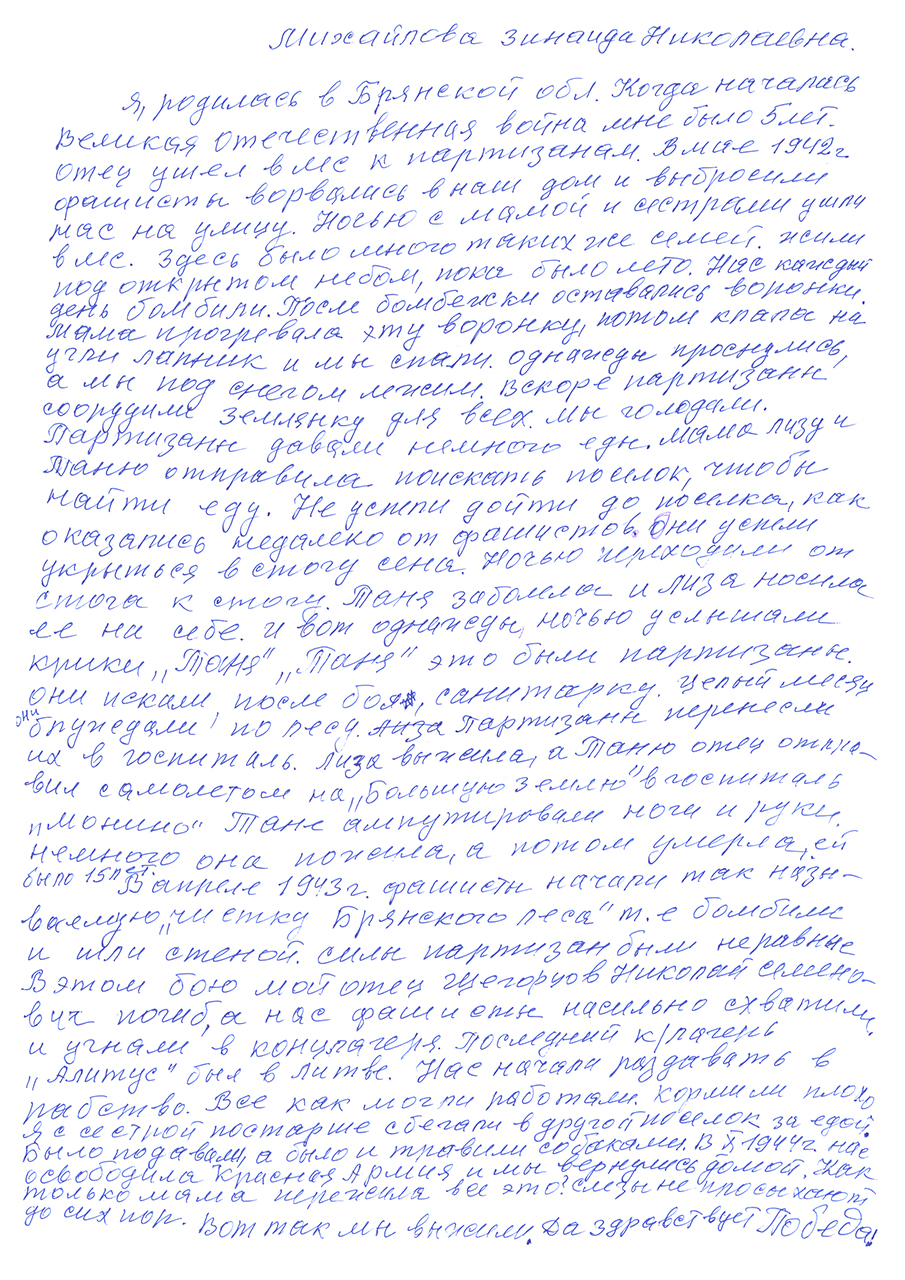 Михайлова Зинаида Николаевна.
Я, родилась в Брянской обл. Когда началась
Великая отечественная война мне было 5 лет.
Отец ушел в лес к партизанам. В мае 1942г
фашисты ворвались в наш дом и выбросили
нас на улицу. Ночью с мамой и сестрами ушли
в лес. Здесь было много таких же семей. жили
под открытом небом, пока было лето. Нас каждый
день бомбили. После бомбежки оставались воронки.
Мама прогревала эту воронку, потом клала на
угли лапник и мы спали. однажды проснулись,
а мы под снегом лежим. Вскоре партизаны
соорудили землянку для всех. Мы голодали.
Партизаны давали немного еды. Мама Лизу и
Таню отправила поискать поселок, чтобы
найти еду. Не успли дойти до поселка, как
оказались недалеко от фашистов. Они успели
укрыться в стогу сена. Ночью переходили от
стога к стогу. Таня заболела и Лиза носила
ее на себе. И вот однажды, ночью услышали
крики „Таня" „Таня" это были партизаны.
они искали после боя, санитарку. Целый месяц
они блуждали по лесу. Партизаны перенесли
их в госпиталь. Лиза выжила, а Таню отец отпра-
вил самолетом на „Большую Землю" в госпиталь
„Монино" Тане ампутировали ноги и руки.
немного она пожила, а потом умерла, ей
было 15 лет.
В апреле 1943г. фашисты начали так назы-
ваемую „чистку Брянского леса" т.е бомбили
и шли стеной. силы партизан были неравные
В этом бою мой отец Щегорцов Николай Семено-
вич погиб, а нас фашисты насильно схватили,
и угнали в концлагеря. Последний к/лагерь
„Алитус" был в Литве. Нас начали раздавать в
рабство. Все как могли работали. Кормили плохо
Я с сестрой постарше сбегали в другой поселок за едой.
Было подавали, а было и травили собаками. В X 1944г. нас
освободила Красная Армия и мы вернулись домой. Как
только мама пережила все это? слезы не просыхают
до сих пор.
Вот так мы выжили. Да здравствует Победа!